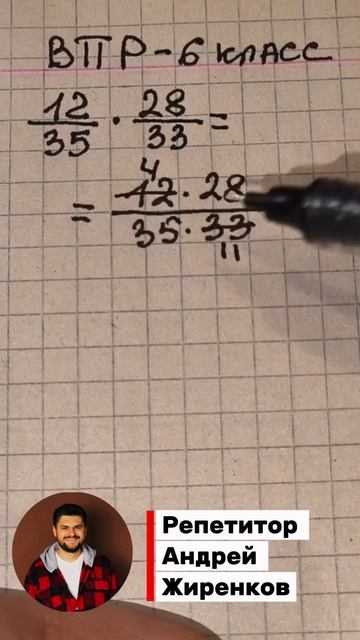 ВПР - 6 класс
12/35 · 28/33 =
4
= 12 · 28 / 35 · 33
11
Репетитор
Андрей
Жиренков